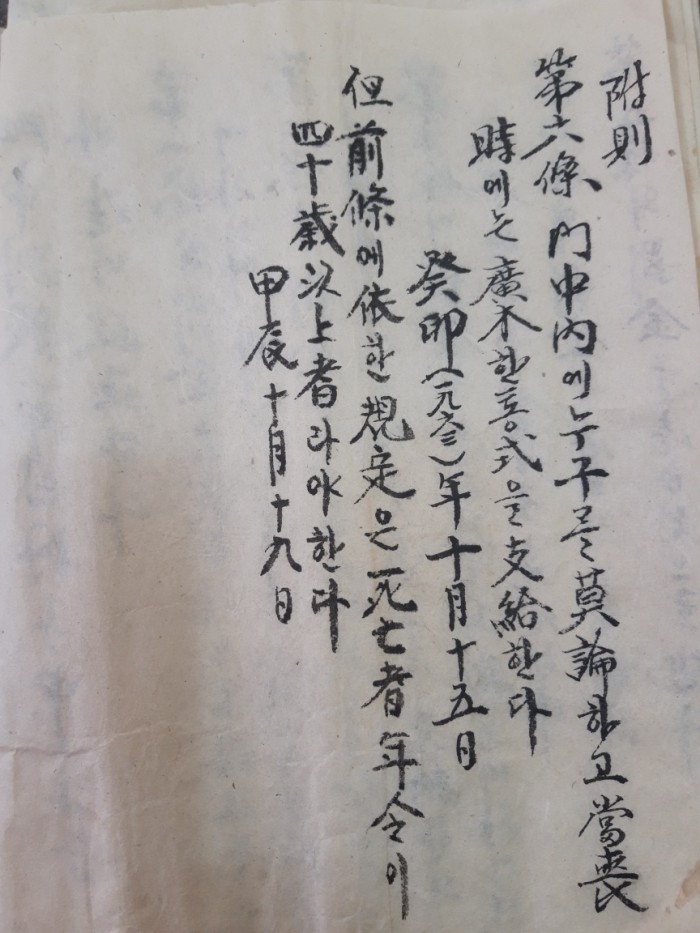 附則
第六條 門中內에 누구를 莫論하고 當喪
時에는 廣木 한통式을 支給한다
癸卯(一九六三)年 十月 十五日
但 前條에 依한 規定은 死亡者 年令이
四十歲 以上者라야 한다
甲辰 十月 十九日